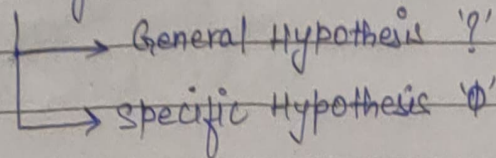 General Hypothesis '?'
specific Hypothesis 'Φ'